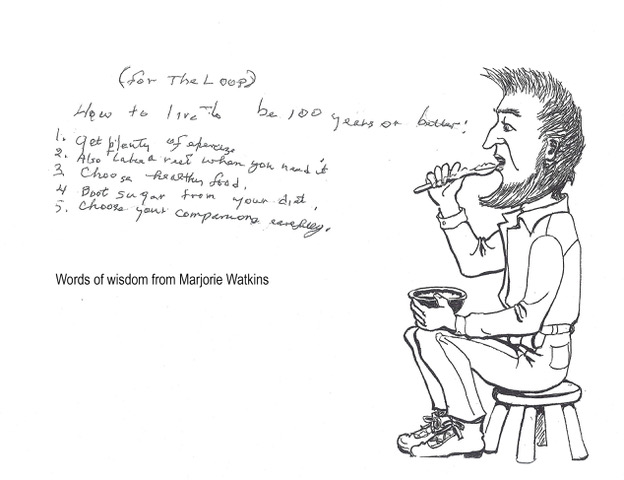 (for The Loop)
How to live to be 100 years or better!
1. Get plenty of exercise
2. Also take a rest when you need it
3. Choose healthy food.
4 Boot sugar from your diet.
5. Choose your companions carefully.
Words of wisdom from Marjorie Watkins